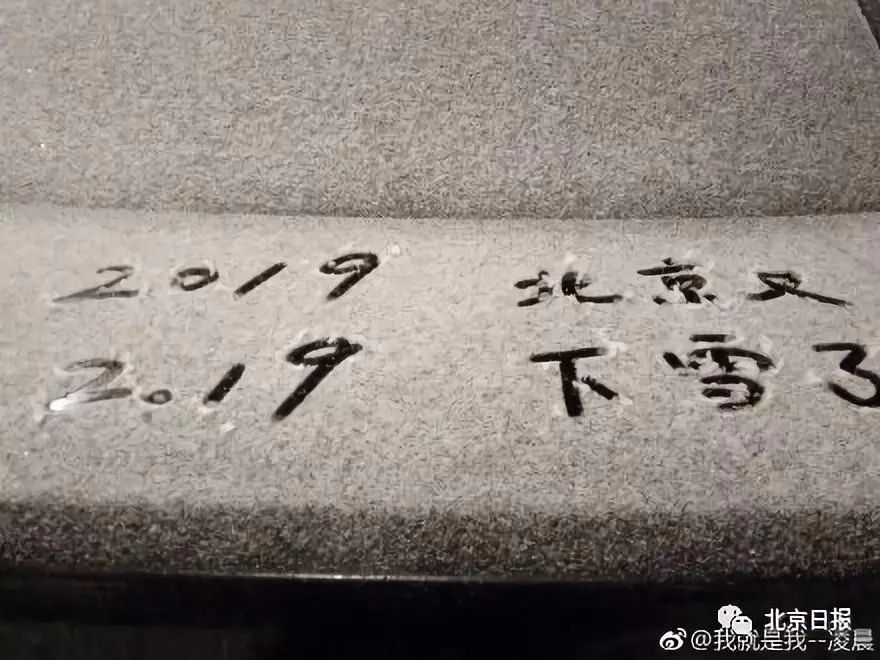 2019 北京又
2.19 下雪了
北京日报
@我就是我--凌晨